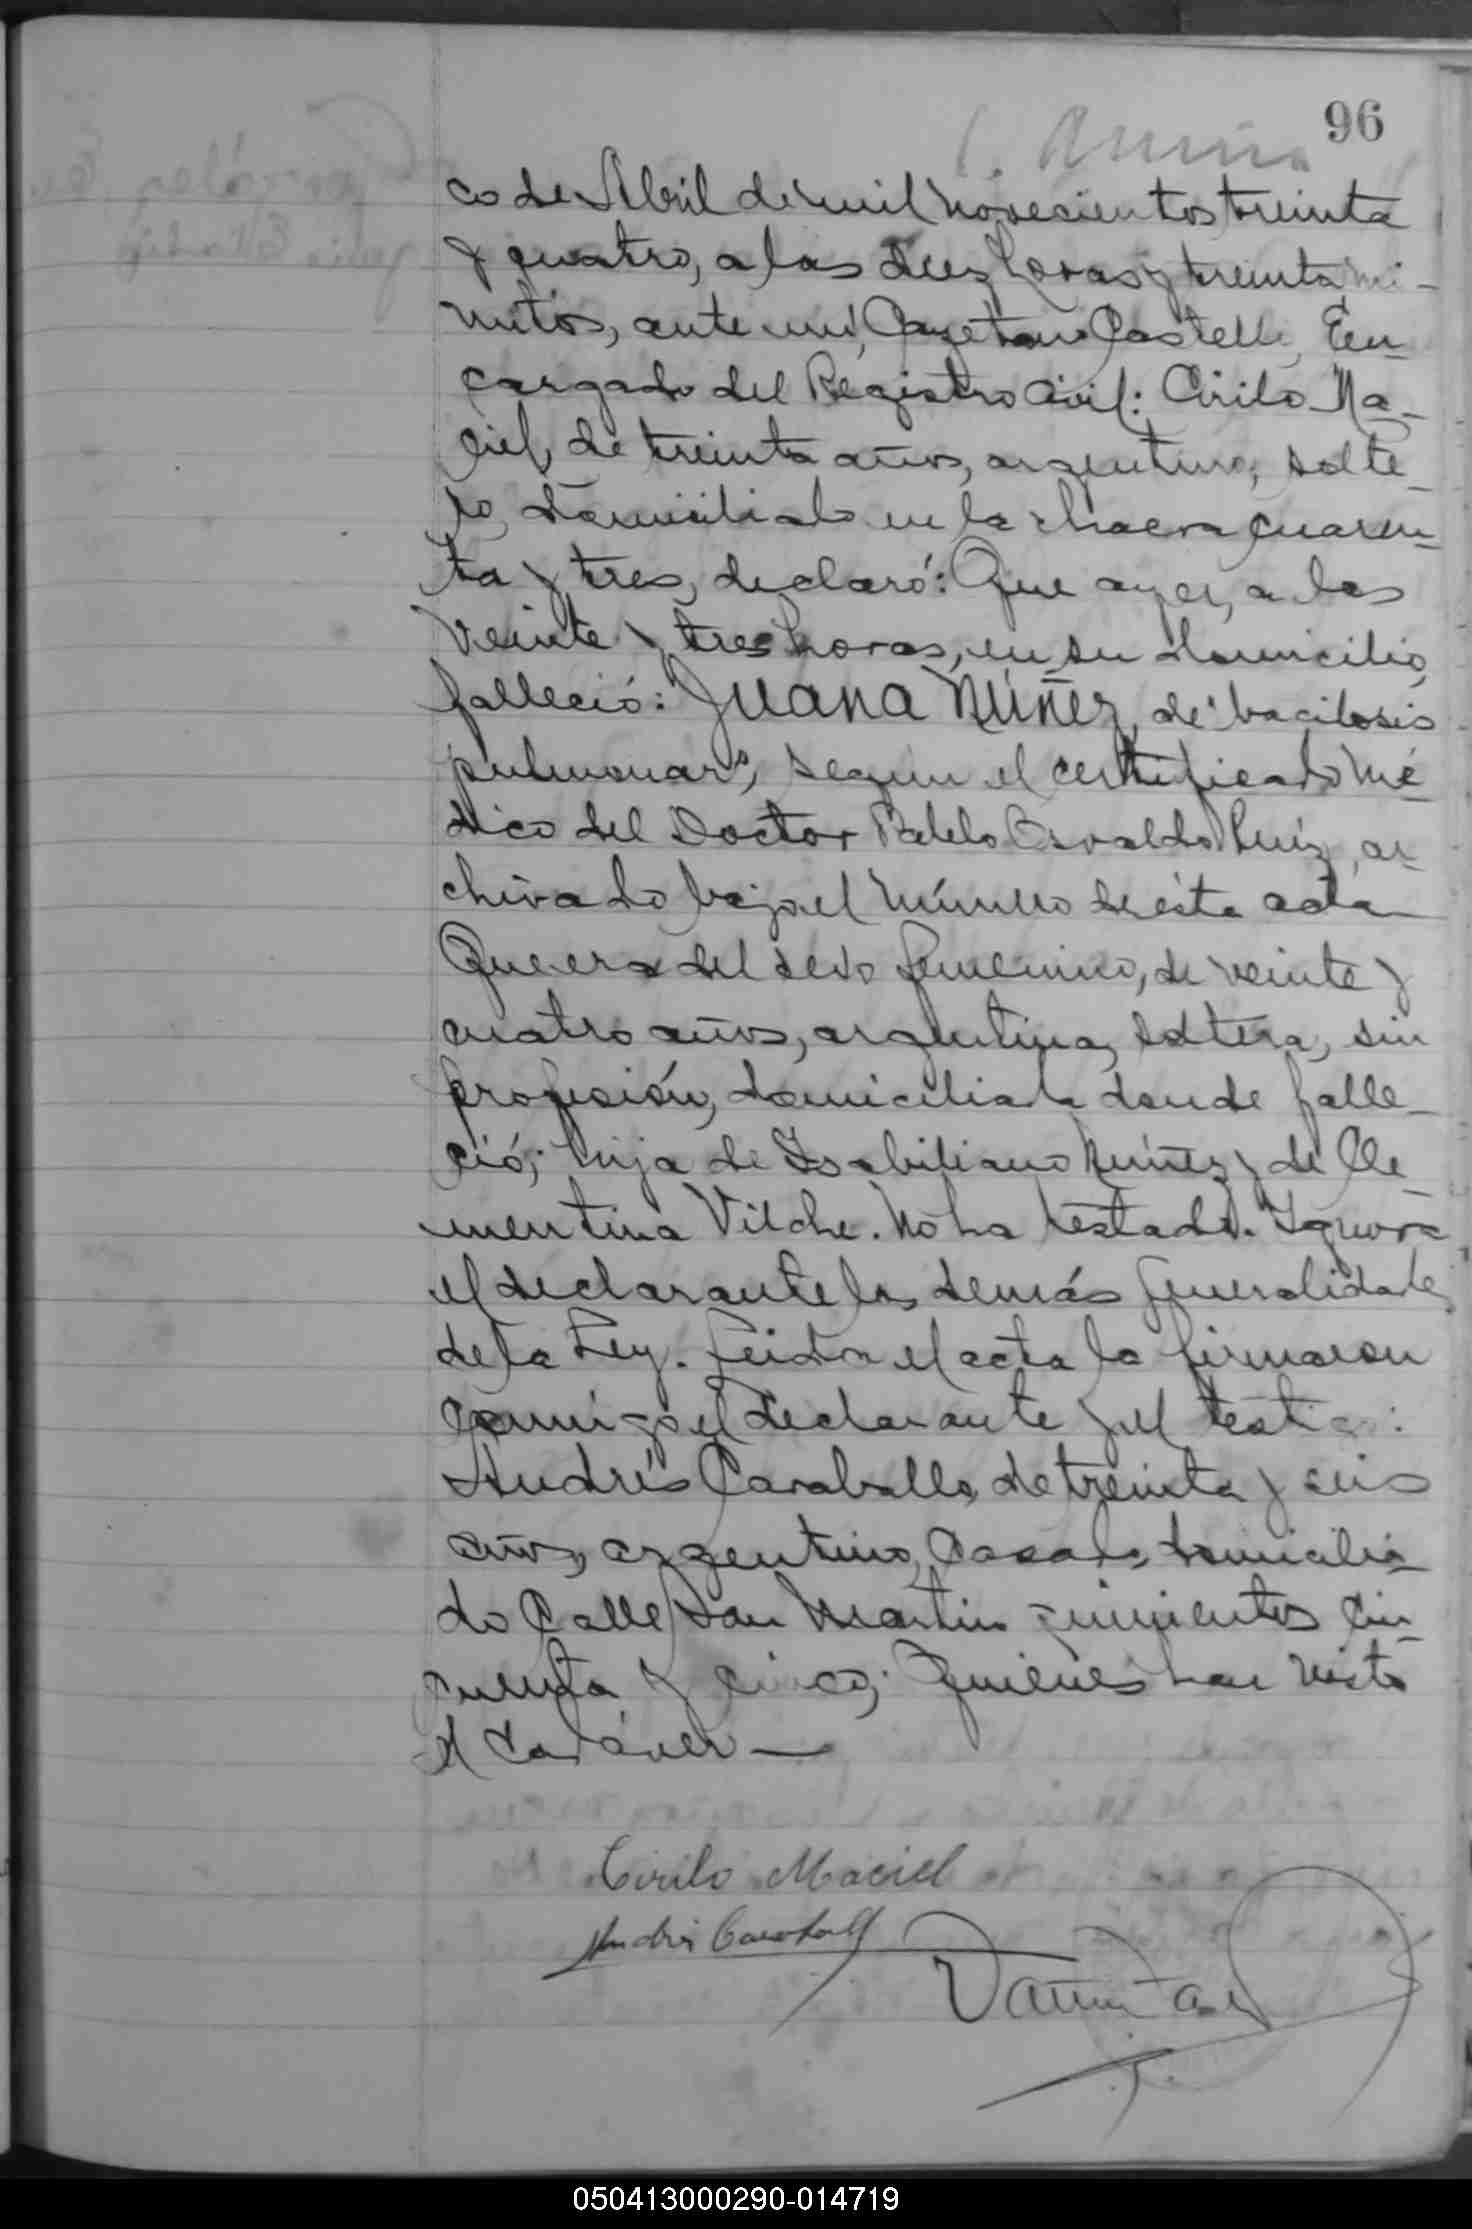 96
co de Abril de mil novecientos treinta
y cuatro, a las diez horas y treinta mi-
nutos, ante mí, Cayetano Castelli, En-
cargado del Registro Civil: Cirilo Ma-
ciel, de treinta años, argentino, solte-
ro, domiciliado en la chacra cuaren-
ta y tres, declaró: Que ayer, a las
veinte y tres horas, en su domicilio,
falleció: Juana Núñez, de bacilosis
pulmonar, segun el certificado mé-
dico del Doctor Pablo Osvaldo Ruiz, ar-
chivado bajo el número de ésta acta
Que era del sexo femenino, de veinte y
cuatro años, argentina, soltera, sin
profesión, domiciliada donde falle-
ció; hija de Isabiliano Núñez y de Cle-
mentina Vilche. No ha testado. Ignora
el declarante las demás generalidades
de la Ley. Leida el acta la firmaron
conmigo el declarante y el testigo:
Andrés Caraballo, de treinta y seis
años, argentino, casado, domicilia-
do Calle San Martin quinientos cin-
cuenta y cinco; quienes han visto
el cadáver —
Cirilo Maciel
Andrés Caraball
050413000290-014719